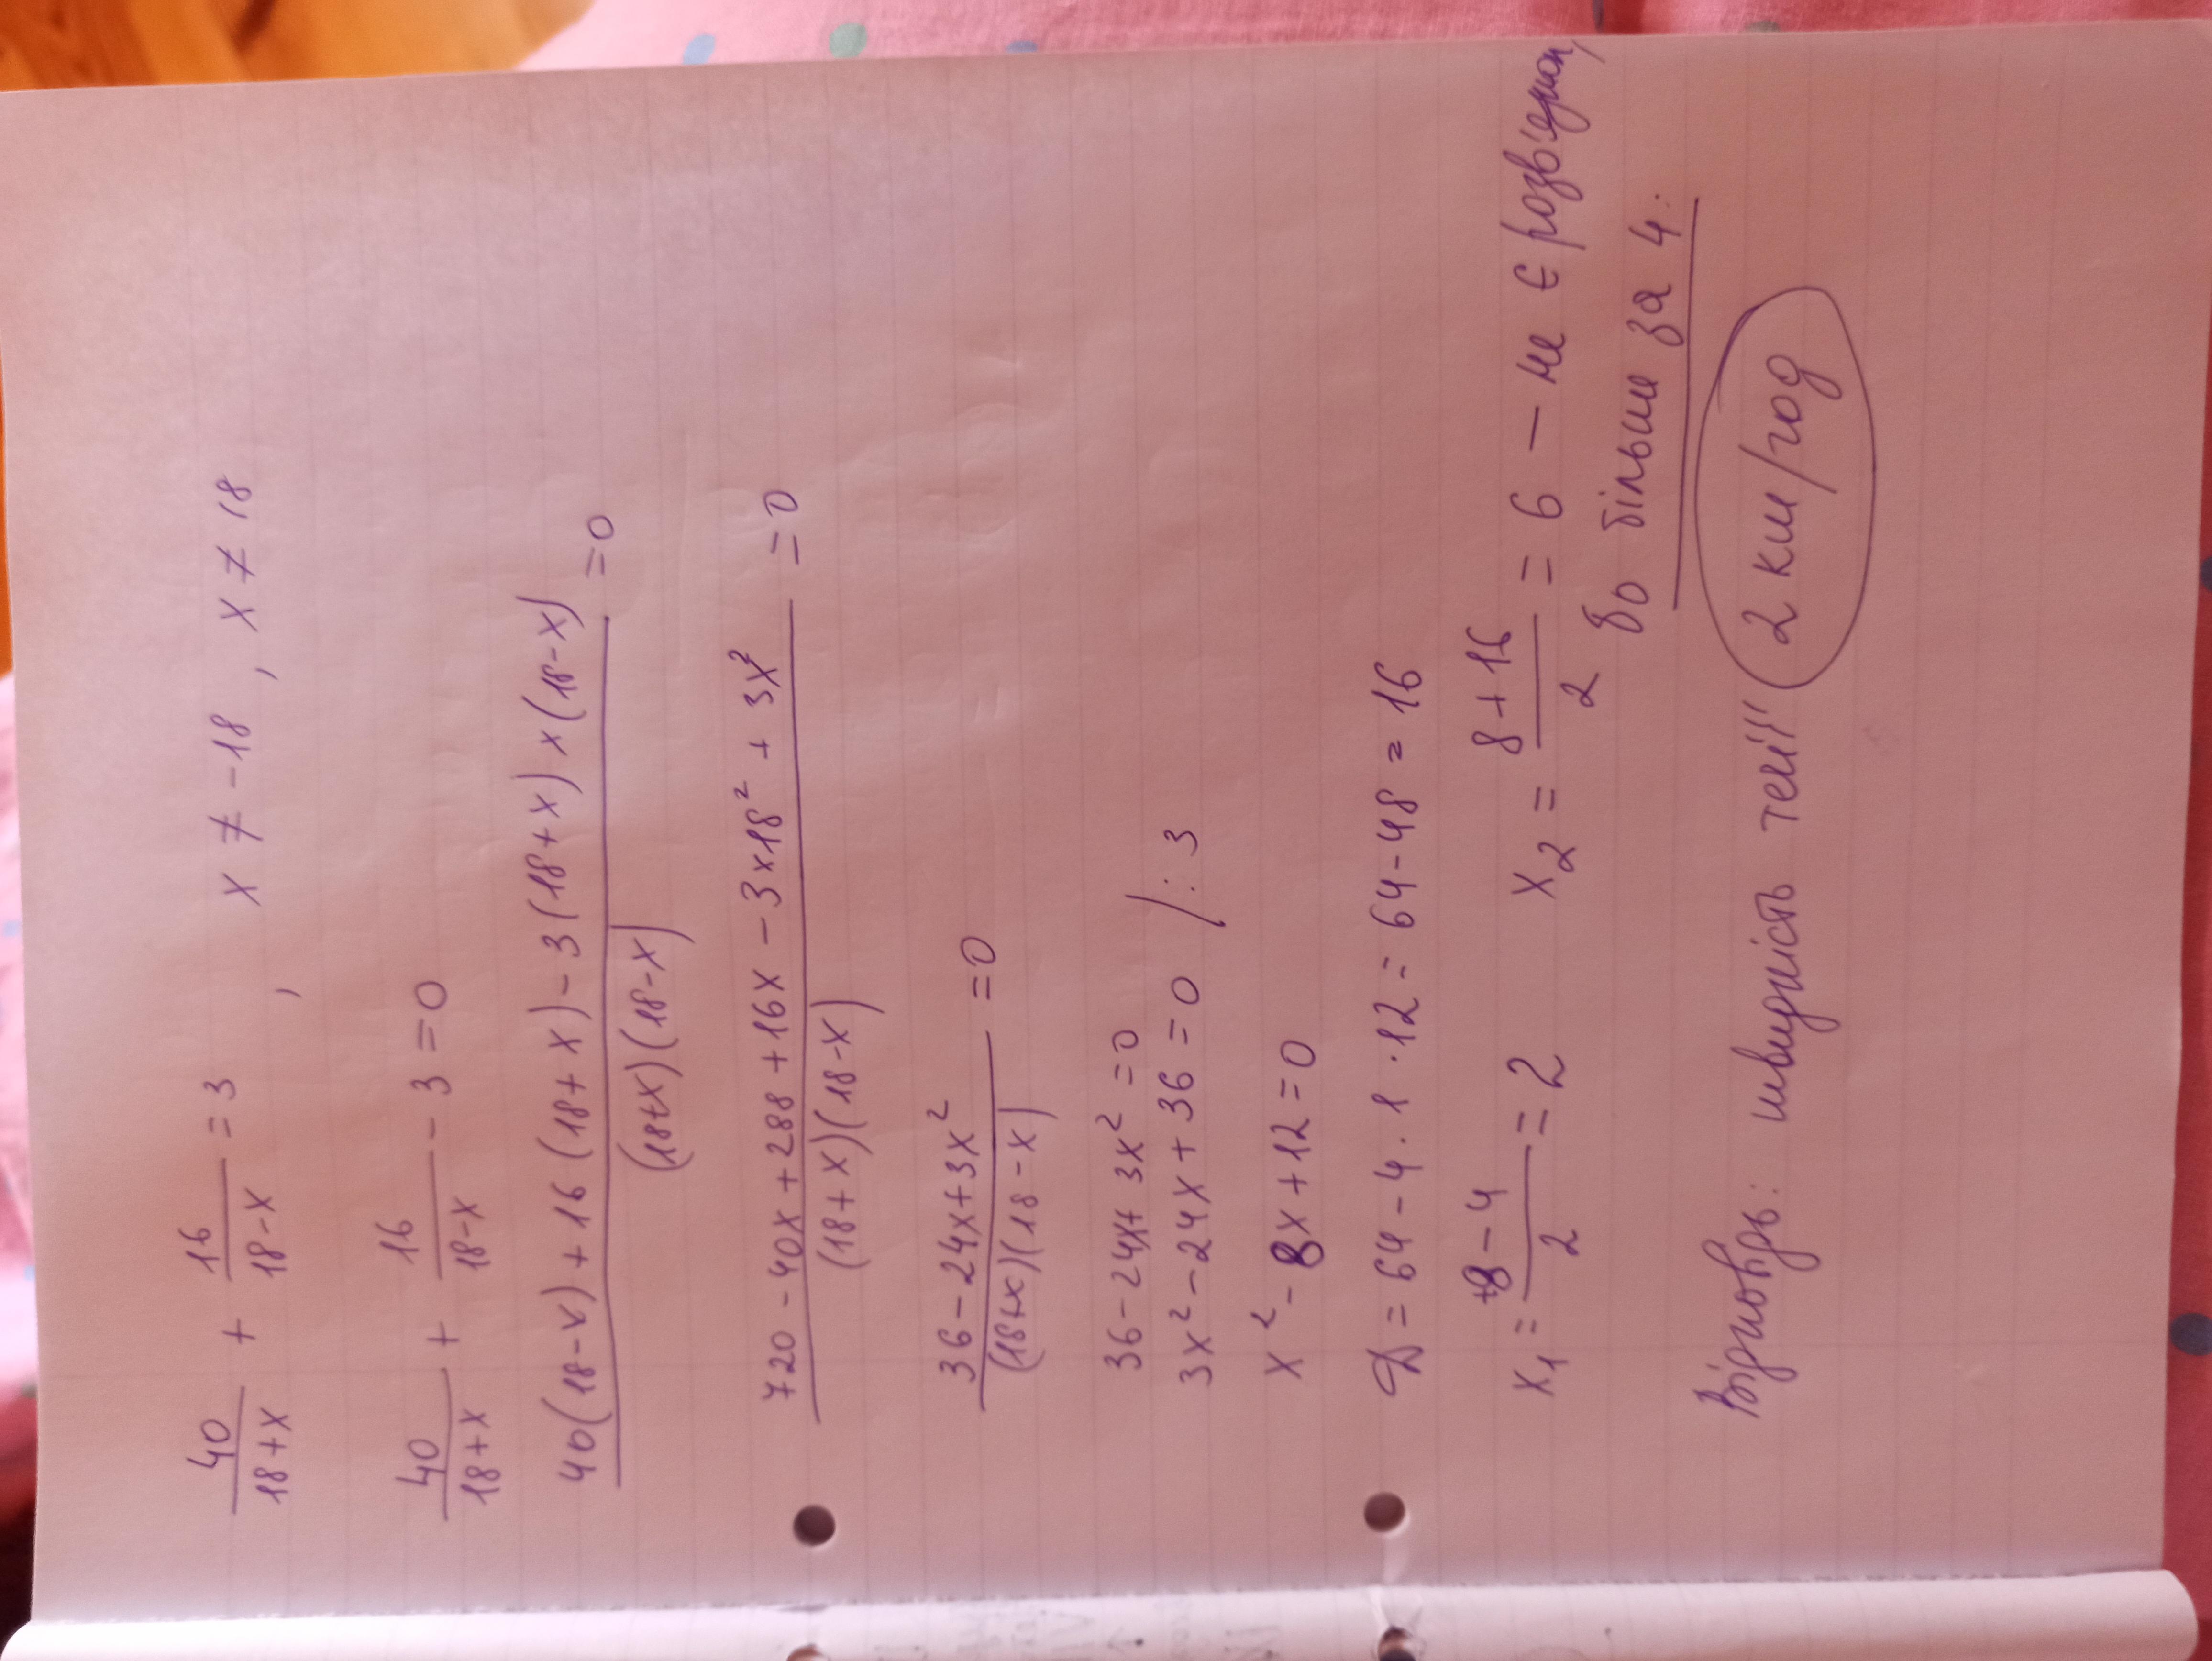 40/(18+x) + 16/(18-x) = 3 , x ≠ -18 , x ≠ 18
40/(18+x) + 16/(18-x) - 3 = 0
(40(18-x) + 16(18+x) - 3(18+x) x (18-x))/((18+x)(18-x)) = 0
(720 - 40x + 288 + 16x - 3x18² + 3x²)/((18+x)(18-x)) = 0
(36 - 24x + 3x²)/((18+x)(18-x)) = 0
36 - 24x + 3x² = 0
3x² - 24x + 36 = 0 /: 3
x² - 8x + 12 = 0
D = 64 - 4 · 1 · 12 = 64 - 48 = 16
x₁ = (+8 - 4)/2 = 2 x₂ = (8 + 16)/2 = 6 - не є розв'язком,
бо більше за 4.
Відповідь: швидкість течії 2 км/год